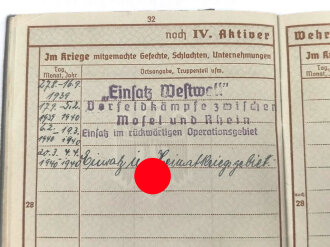 32
noch IV. Aktiver
Wehr
Im Kriege mitgemachte Gefechte, Schlachten, Unternehmungen
Tag, Monat, Jahr
Ortsangabe, Truppenteil usw.
Tag, Monat, Jahr
27.8.-16.9. 1939
"Einsatz Westwall"
17.9.-5.2. 1939 1940
Vorfeldkämpfe zwischen
Mosel und Rhein
6.2.-19.3. 1940 1940
Einsatz im rückwärtigen Operationsgebiet
20.3. 4.4. 1940 1940
Einsatz im Heimatkriegsgebiet.
28
28